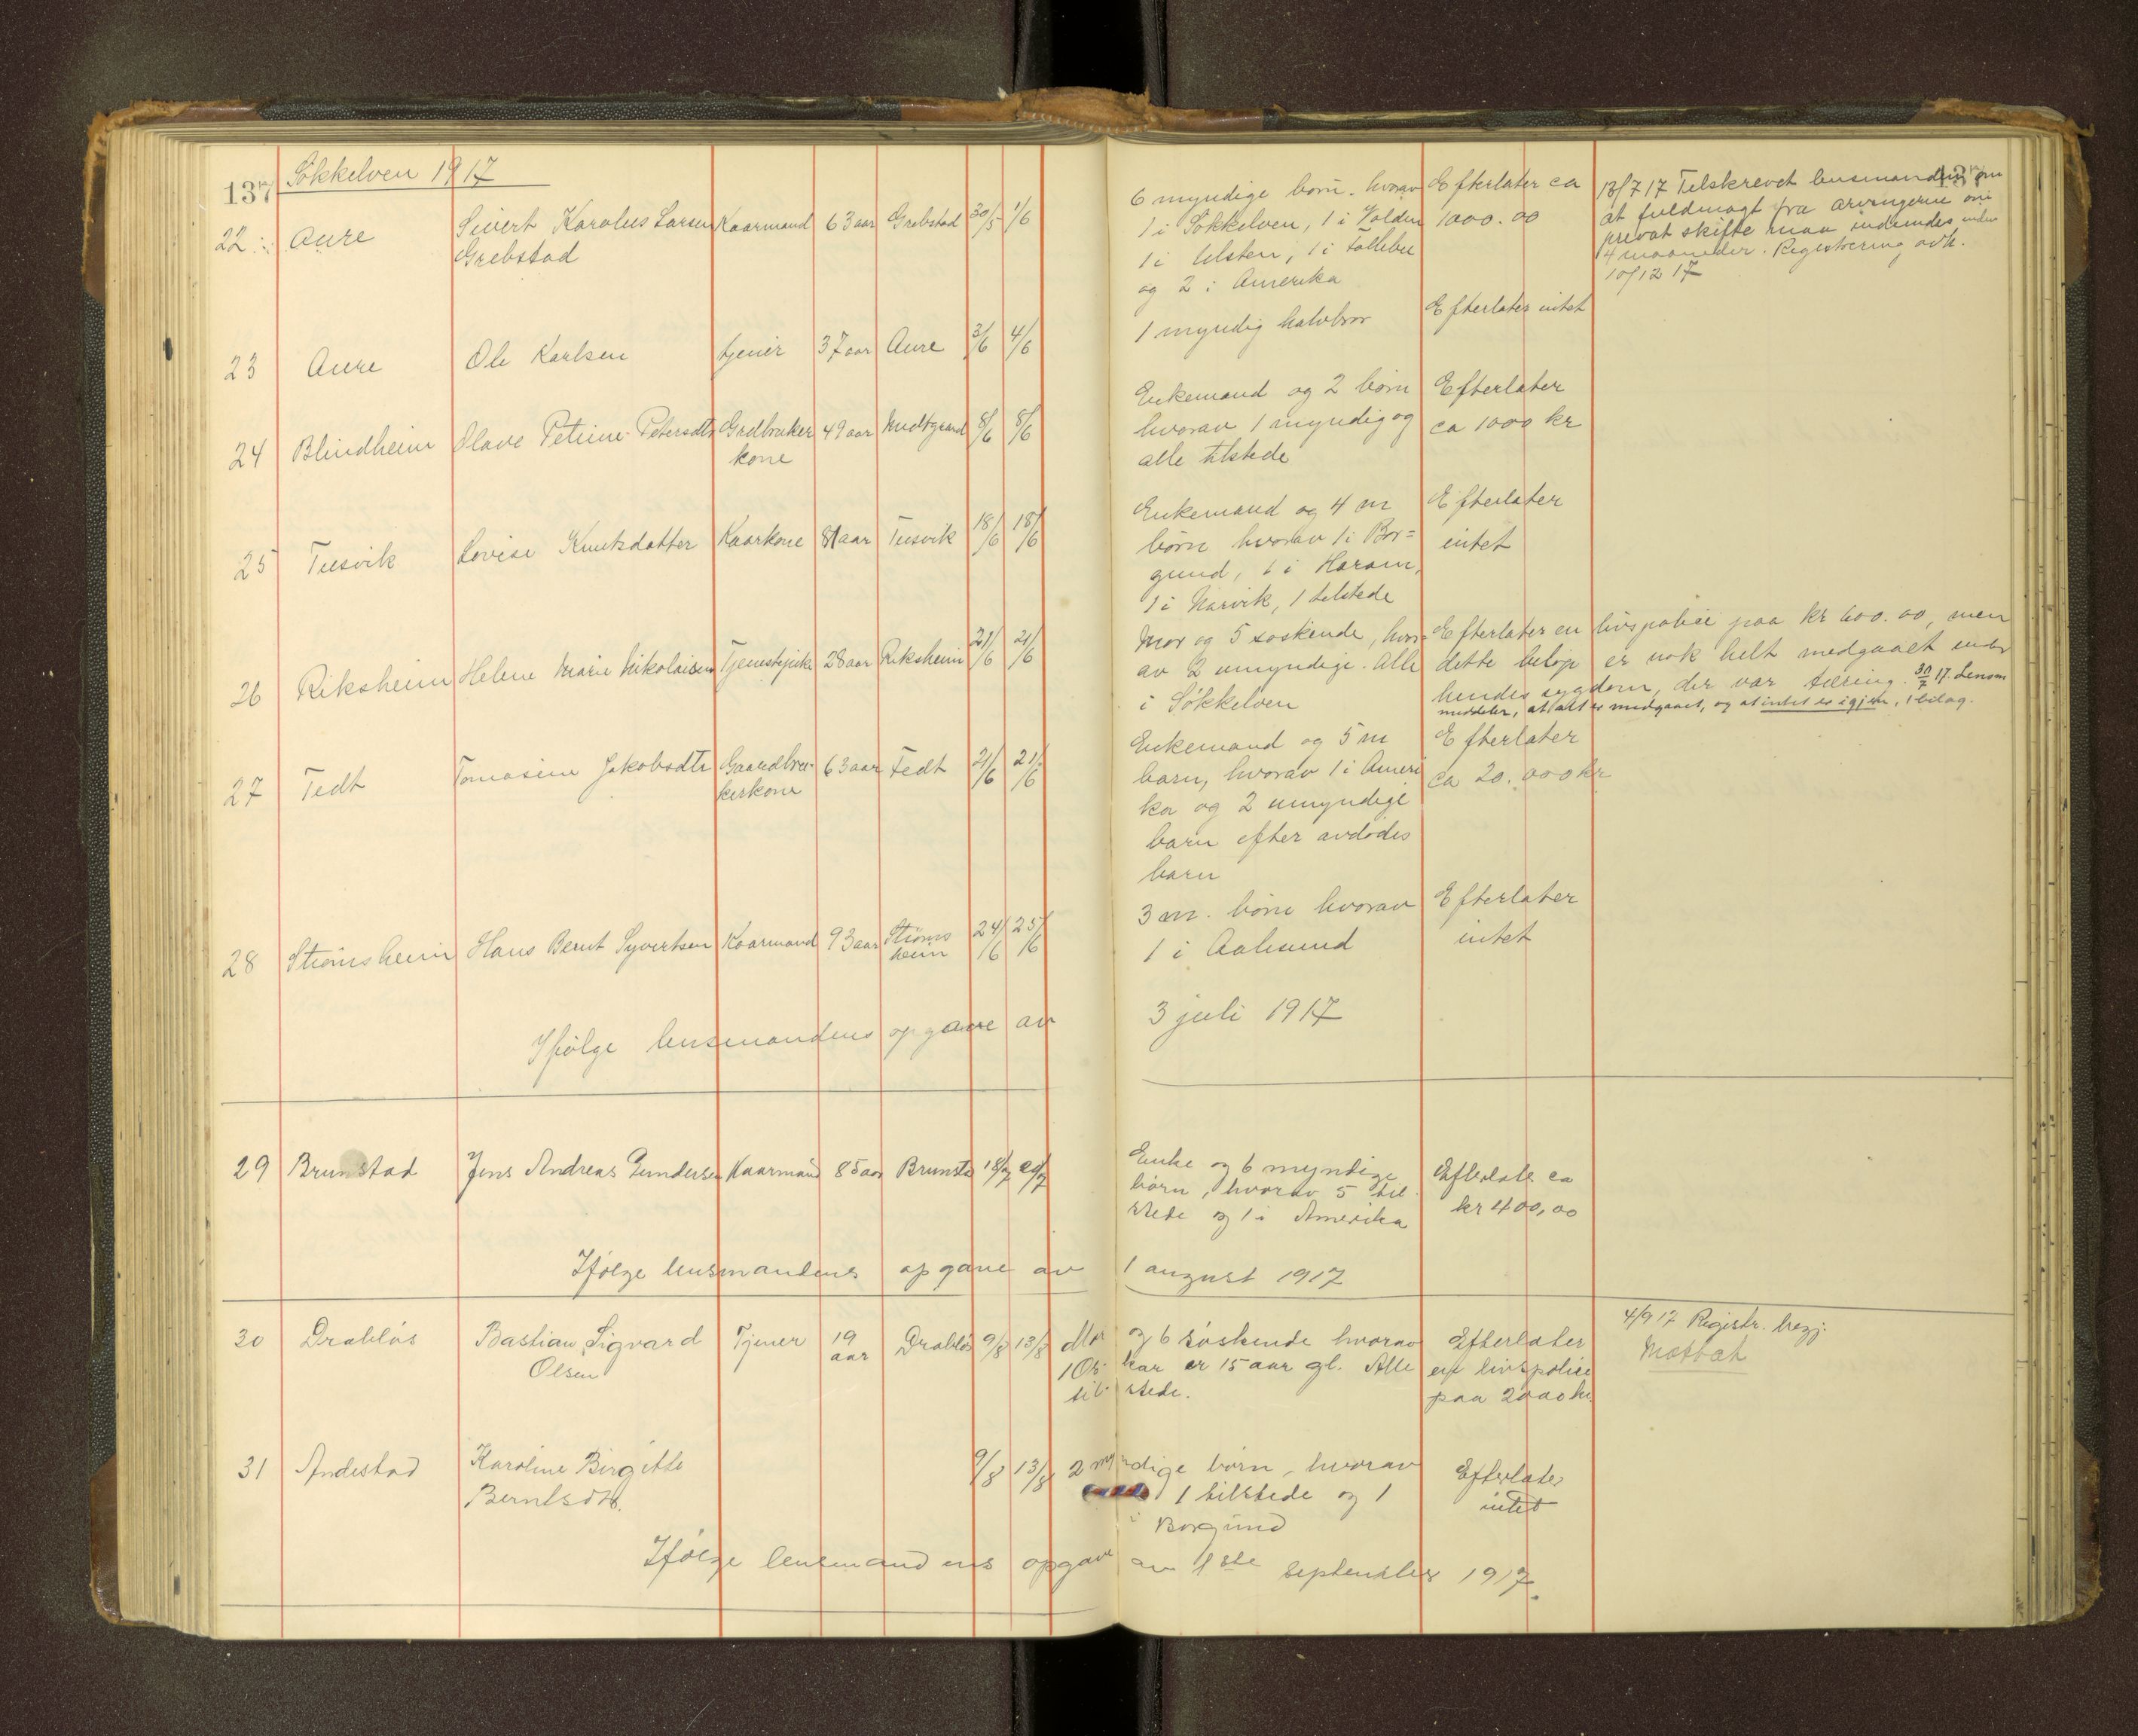 137 Søkkelven 1917
22 Aure Sivert Karolus Larsen Kaarmand 63 aar Grebstad 30/5 1/6
Grebstad
6 myndige børn. hvorav Efterlater ca
1 i Søkkelven, 1 i Volden 1000.00
1 i Ulsten, 1 i
og 2 i Amerika
13/7 17 Tilskrevet lensmanden om
at fuldmagt fra arvingerne om
privat skifte maa indsendes inden
4 maaneder. Registrering avh.
10/12 17
137
23 Aure Ole Karlsen tjener 37 aar Aure 3/6 4/6
1 myndig halvbror Efterlater intet
24 Blindheim Olave Petrine Petersdtr Grdbruker 49 aar Midtgaard 8/6 8/6
kone
Enkemand og 2 børn Efterlater
hvorav 1 myndig og ca 1000 kr
alle tilstede
25 Tusvik Lovise Knutsdatter Kaarkone 81 aar Tusvik 18/6 18/6
Enkemand og 4 m Efterlater
børn hvorav 1 i Bor= intet
gund, 1 i Haram,
1 i Narvik, 1 tilstede
26 Riksheim Helene Marie Nikolaisen Tjenestepike 28 aar Riksheim 21/6 21/6
Mor og 5 søskende, hvor= Efterlater en livspolice paa kr 600.00, men
av 2 umyndige. Alle dette beløp er nok helt medgaaet under
i Søkkelven hendes sygdom, der var tæring. 30/7 17. Lensm
meddeler, at alt er medgaaet, og at intet er igjen, 1 bilag.
27 Tedt Tomasine Jakobsdtr Gaardbru- 63 aar Fedt 21/6 21/6
kerkone
Enkemand og 5 m Efterlater
barn, hvorav 1 i Ameri ca 20.000 kr
ka og 2 umyndige
barn efter avdødes
barn
28 Strømsheim Hans Bernt Syvertsen Kaarmand 93 aar Strøms 24/6 25/6
heim
3 m. børn hvorav Efterlater
1 i Aalesund intet
Ifølge lensmandens opgave av 3 juli 1917
29 Brunstad Jens Andreas Gundersen Kaarmand 85 aar Brunsta 18/7 20/7
Enke og 6 myndige Efterlate ca
børn, hvorav 5 til kr 400,00
stede og 1 i Amerika
Ifølge lensmandens opgave av 1 august 1917
30 Drabløs Bastian Sigvard Tjener 19 Drabløs 9/8 13/8 Mor og 6 søskende hvorav Efterlater
Olsen aar 1 Oskar er 15 aar gl. Alle en livspolice
til stede. paa 2000 kr.
4/9 17 Registr. begj.
31 Andestad Karoline Birgitte 9/8 13/8 2 myndige børn, hvorav Efterlater
Berntsdtr. 1 tilstede og 1 intet
i Borgund
Ifølge lensmandens opgave av 1ste september 1917.